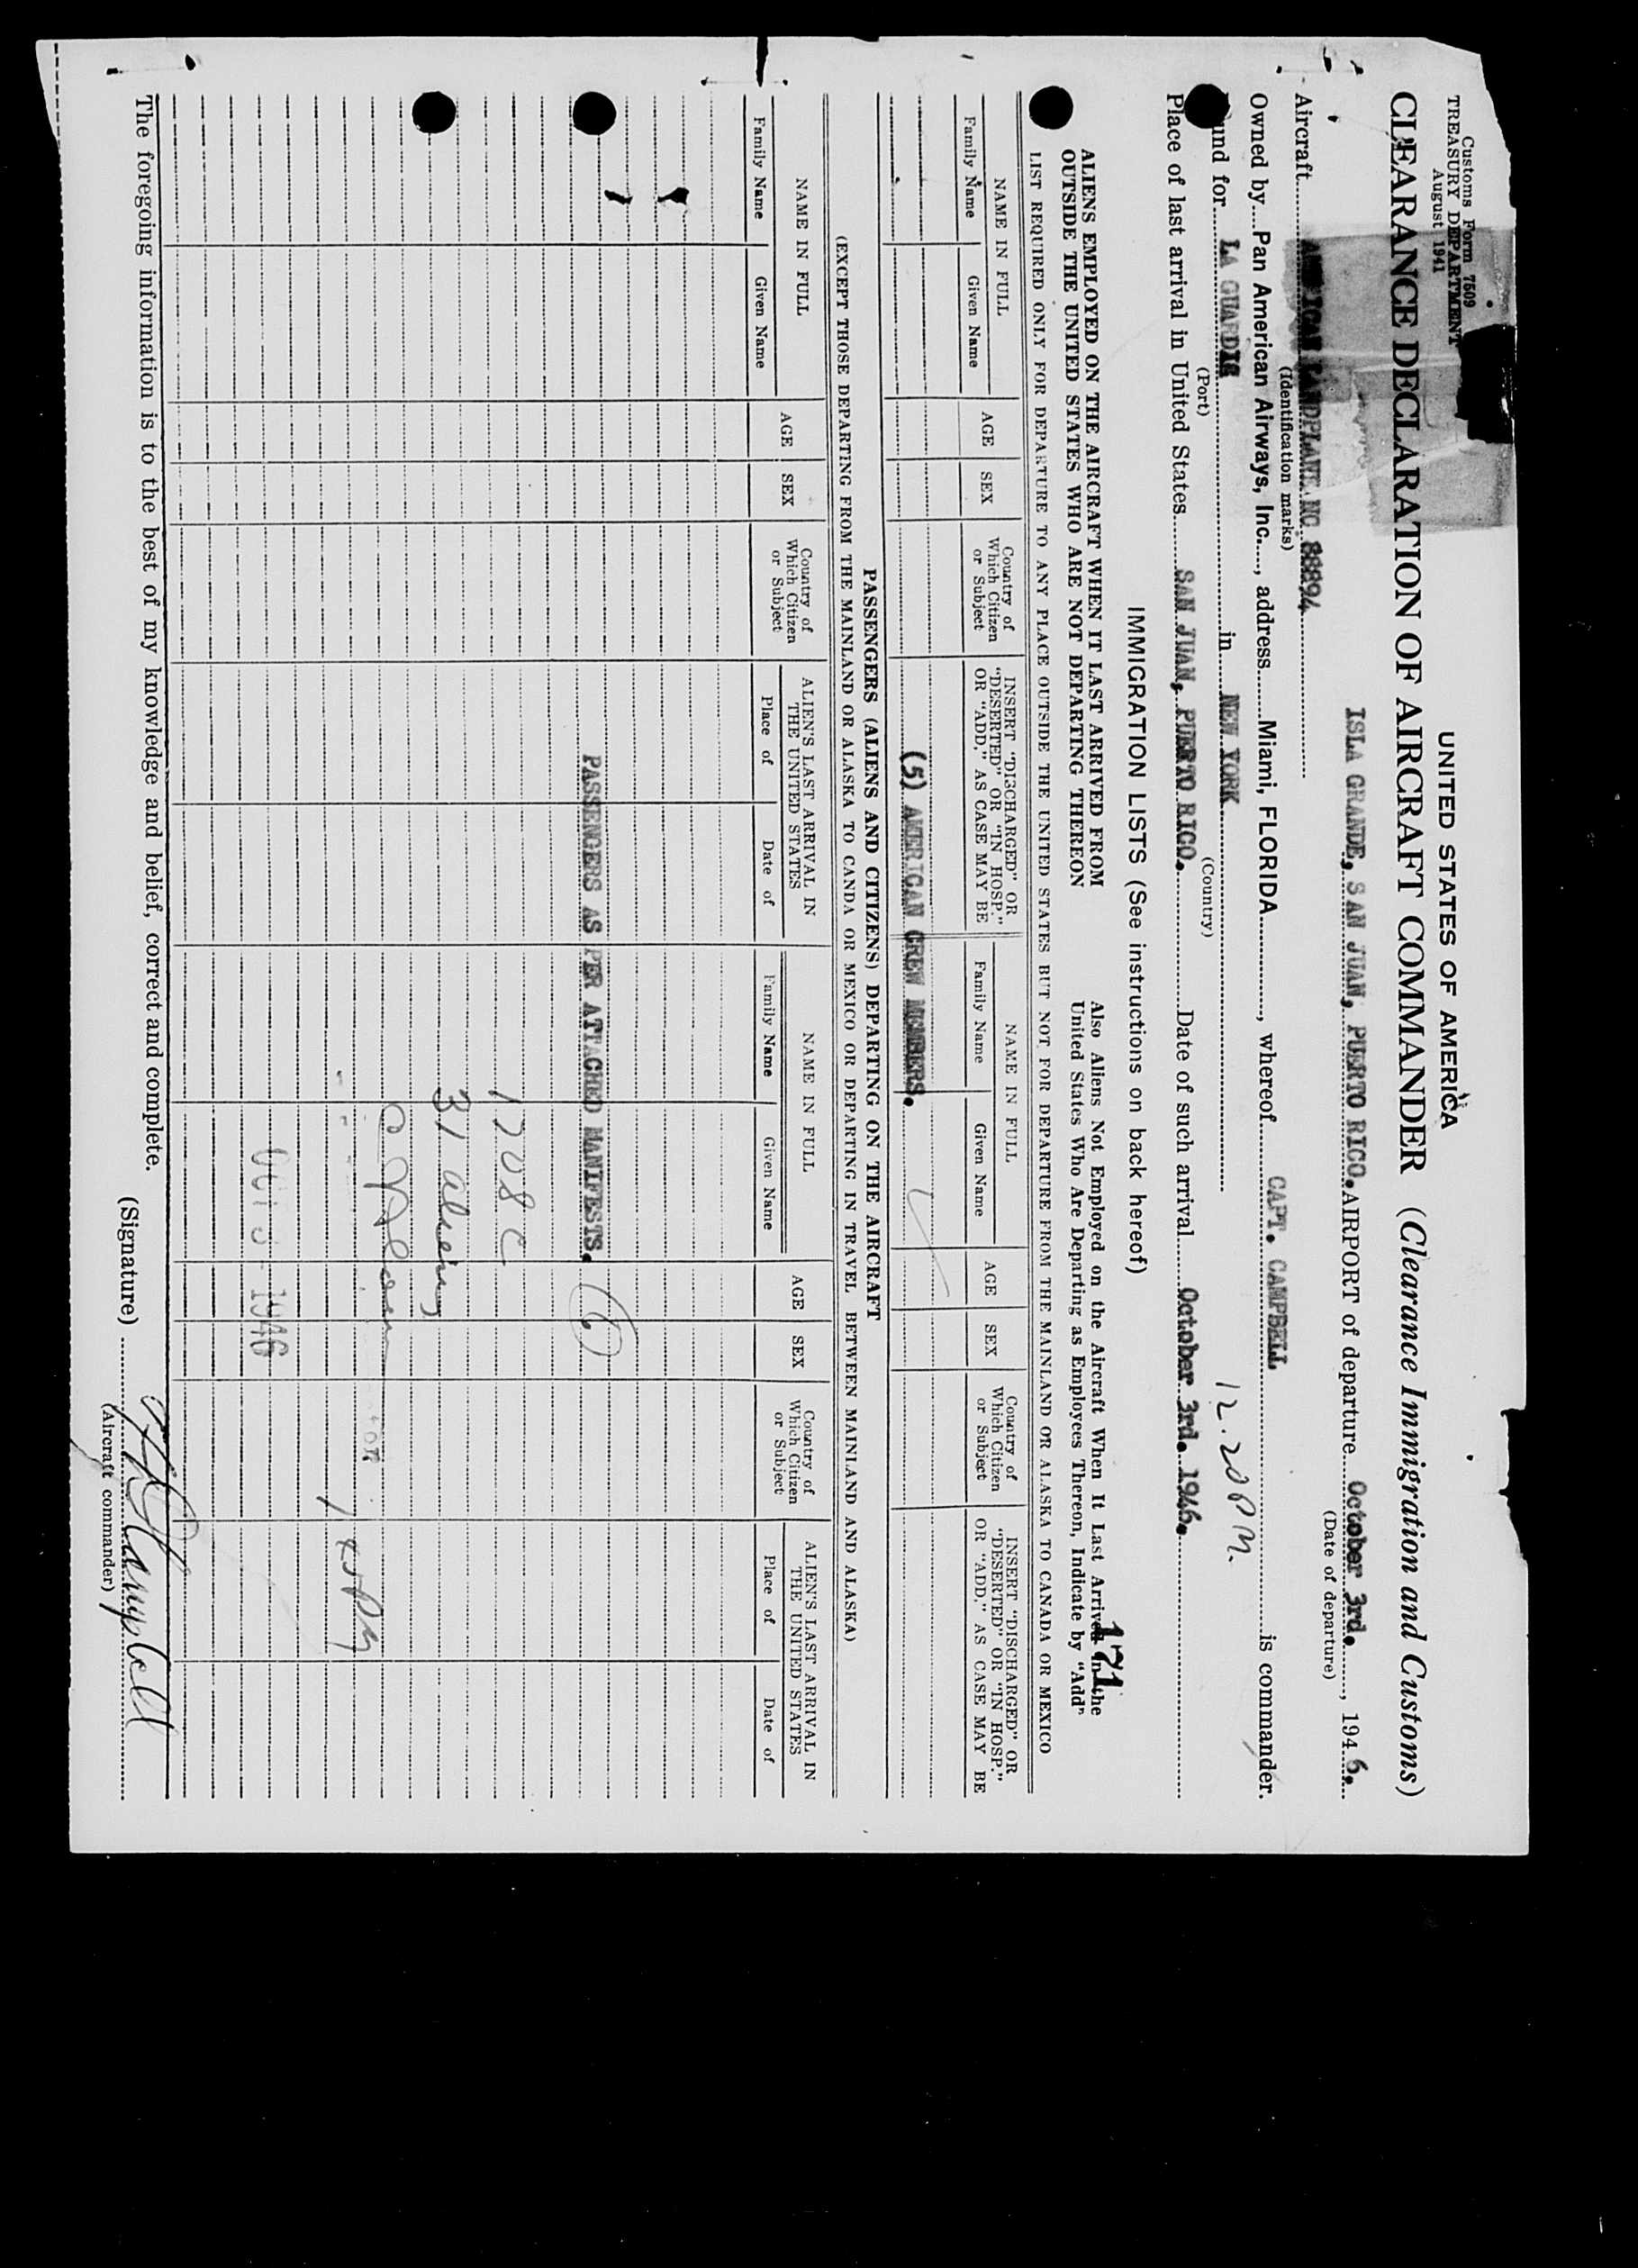 Customs Form 7509
TREASURY DEPARTMENT
August 1941
UNITED STATES OF AMERICA
CLEARANCE DECLARATION OF AIRCRAFT COMMANDER (Clearance Immigration and Customs)
ISLA GRANDE, SAN JUAN, PUERTO RICO. AIRPORT of departure October 3rd. , 194 6.
(Date of departure)
Aircraft AMERICAN LANDPLANE NC 88894
(Identification marks)
Owned by Pan American Airways, Inc. , address Miami, FLORIDA , whereof CAPT. CAMPBELL is commander.
und for LA GUARDIA in NEW YORK 12.20 P M.
(Port) (Country)
Place of last arrival in United States SAN JUAN, PUERTO RICO. Date of such arrival October 3rd. 1946.
IMMIGRATION LISTS (See instructions on back hereof)
171
ALIENS EMPLOYED ON THE AIRCRAFT WHEN IT LAST ARRIVED FROM
OUTSIDE THE UNITED STATES WHO ARE NOT DEPARTING THEREON
Also Aliens Not Employed on the Aircraft When It Last Arrived in the
United States Who Are Departing as Employees Thereon, Indicate by "Add"
LIST REQUIRED ONLY FOR DEPARTURE TO ANY PLACE OUTSIDE THE UNITED STATES BUT NOT FOR DEPARTURE FROM THE MAINLAND OR ALASKA TO CANADA OR MEXICO
NAME IN FULL
Family Name Given Name
AGE
SEX
Country of
Which Citizen
or Subject
INSERT "DISCHARGED" OR
"DESERTED" OR "IN HOSP."
OR "ADD," AS CASE MAY BE
NAME IN FULL
Family Name Given Name
AGE
SEX
Country of
Which Citizen
or Subject
INSERT "DISCHARGED" OR
"DESERTED" OR "IN HOSP."
OR "ADD," AS CASE MAY BE
(5) AMERICAN CREW MEMBERS.
PASSENGERS (ALIENS AND CITIZENS) DEPARTING ON THE AIRCRAFT
(EXCEPT THOSE DEPARTING FROM THE MAINLAND OR ALASKA TO CANDA OR MEXICO OR DEPARTING IN TRAVEL BETWEEN MAINLAND AND ALASKA)
NAME IN FULL
Family Name Given Name
AGE
SEX
Country of
Which Citizen
or Subject
ALIEN'S LAST ARRIVAL IN
THE UNITED STATES
Place of Date of
NAME IN FULL
Family Name Given Name
AGE
SEX
Country of
Which Citizen
or Subject
ALIEN'S LAST ARRIVAL IN
THE UNITED STATES
Place of Date of
PASSENGERS AS PER ATTACHED MANIFESTS. (6)
31 aliens
OCT 3 - 1946
The foregoing information is to the best of my knowledge and belief, correct and complete.
(Signature) Campbell
(Aircraft commander)